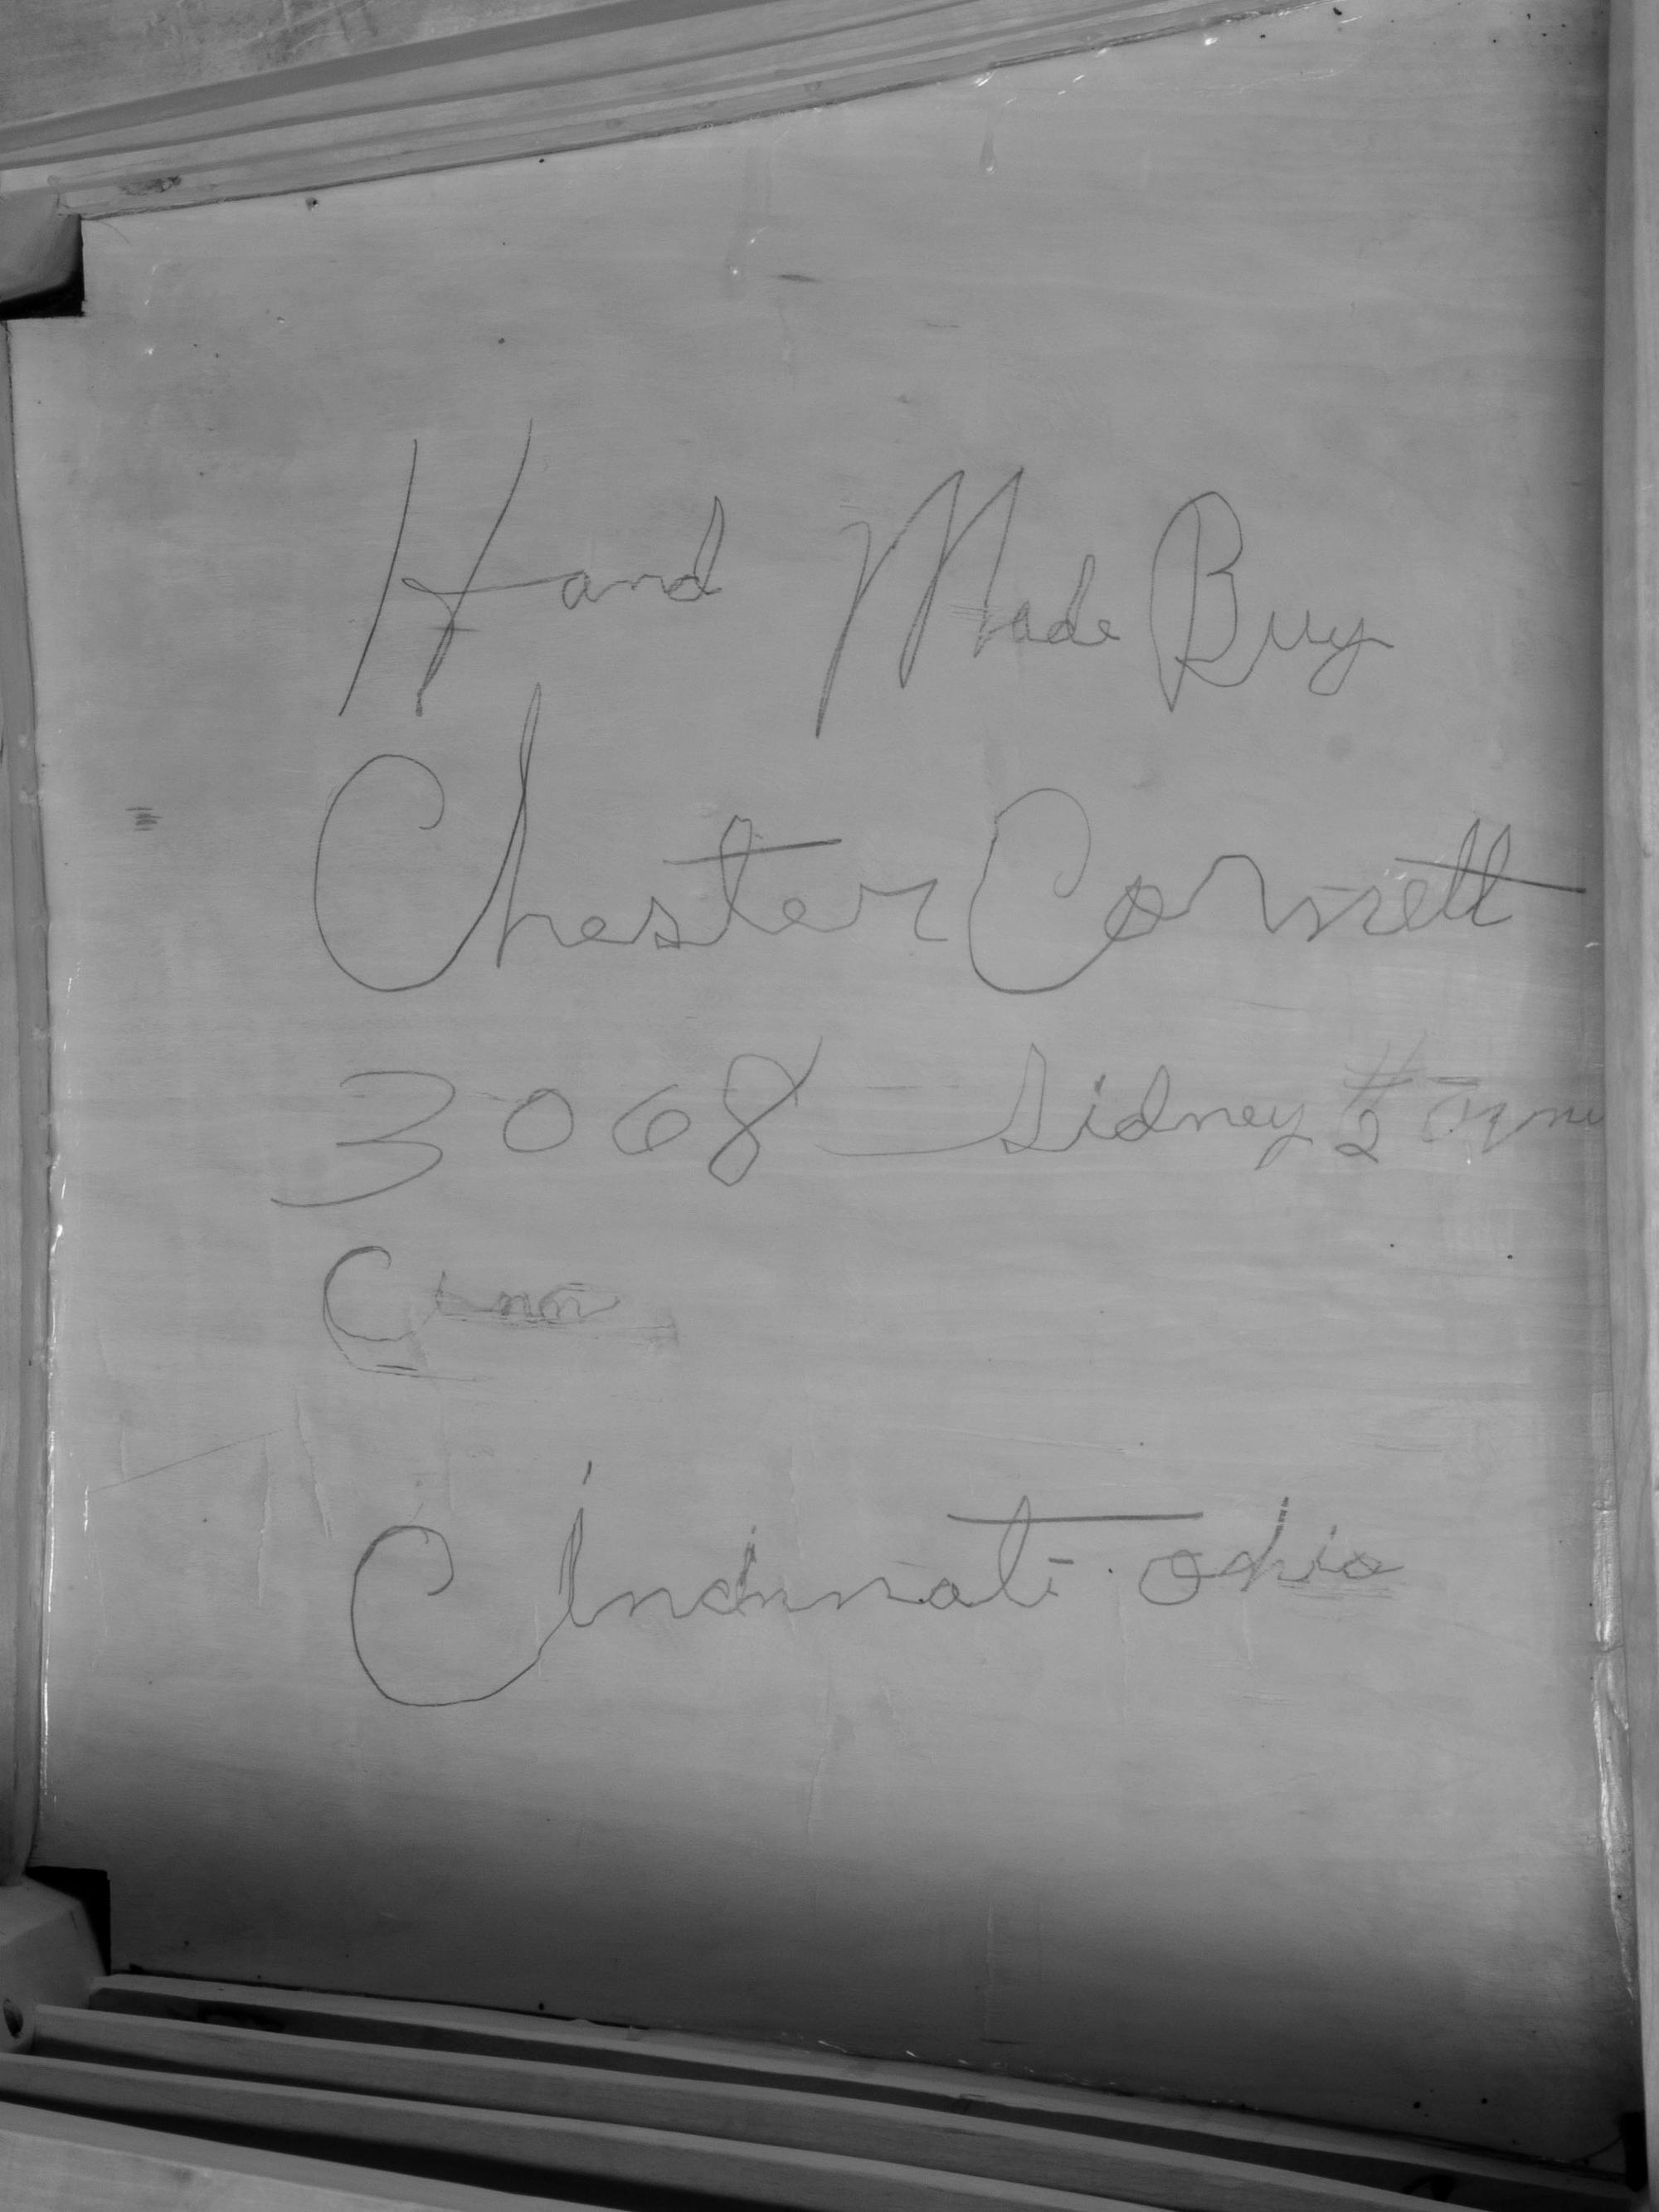 Hand Made Buy
Chester Cornett
3068 Sidney #2
Cinn
Cincinnati Ohio